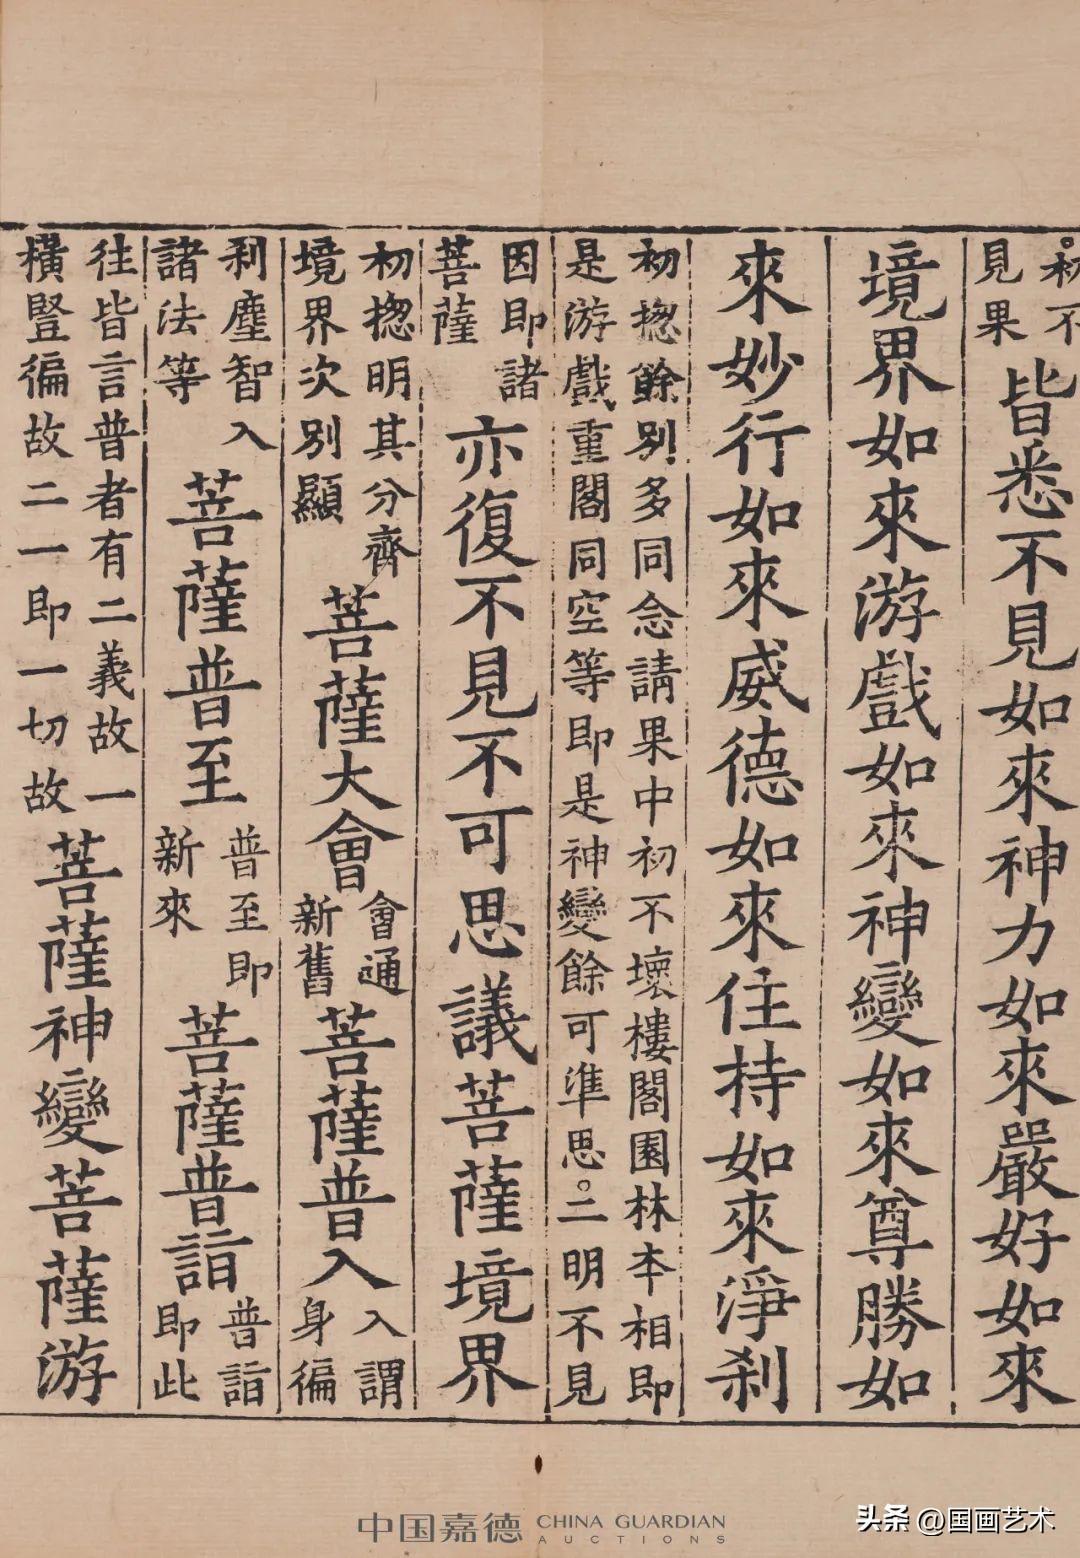 。初不
見果
皆悉不見如來神力如來嚴好如來
境界如來游戲如來神變如來尊勝如
來妙行如來威德如來住持如來淨刹
初揔餘別多同念請果中初不壞樓閣園林本相即
是游戲重閣同空等即是神變餘可準思。二明不見
因即諸
菩薩
亦復不見不可思議菩薩境界
初揔明其分齊
境界次別顯
菩薩大會
會通
新舊
菩薩普入
入謂
身徧
刹塵智入
諸法等
菩薩普至
普至即
新來
菩薩普詣
普詣
即此
往皆言普者有二義故一
橫豎徧故二一即一切故
菩薩神變菩薩游
中国嘉德 CHINA GUARDIAN
AUCTIONS
头条 @国画艺术